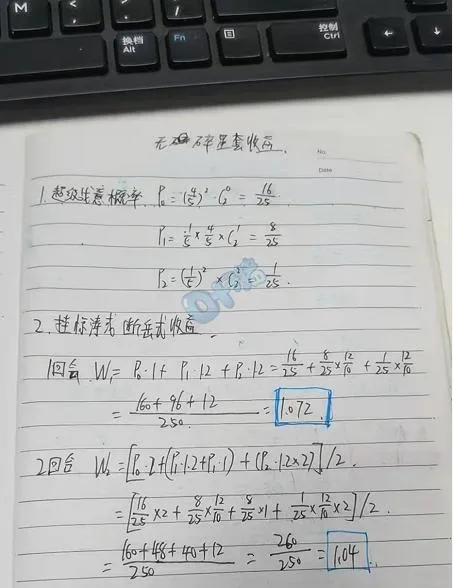 M
<
>
换档
Alt
Fn
控制
Ctrl
无 碎星套收益.
No.
Date
1. 超级生意概率. P₀ = (4/5)² · C₂⁰ = 16/25
P₁ = 1/5 × 4/5 × C₂¹ = 8/25
P₂ = (1/5)² × C₂² = 1/25.
2. 挂标 式 断岳式收益.
1回合. W₁ = P₀·1 + P₁·1.2 + P₂·1.2 = 16/25 + 8/25 × 12/10 + 1/25 × 12/10
= (160 + 96 + 12)/250 = 1.072.
2回合 W₂ = [P₀·2 + (P₁·1.2 + P₁·1) + (P₂·1.2×2)]/2.
= [16/25 × 2 + 8/25 × 12/10 + 8/25 × 1 + 1/25 × 12/10 × 2]/2.
= (160 + 48 + 40 + 12)/250 = 260/250 = 1.04